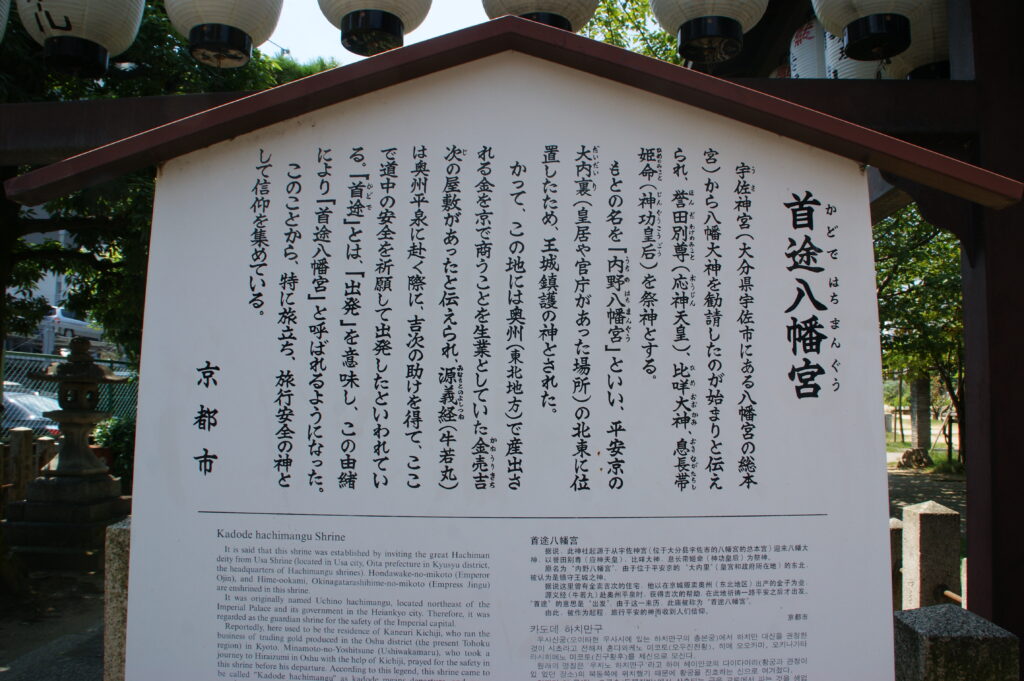 首途八幡宮
かどではちまんぐう
宇佐神宮（大分県宇佐市にある八幡宮の総本
宮）から八幡大神を勧請したのが始まりと伝え
られ、誉田別尊（応神天皇）、比咩大神、息長帯
姫命（神功皇后）を祭神とする。
もとの名を『内野八幡宮』といい、平安京の
大内裏（皇居や官庁があった場所）の北東に位
置したため、王城鎮護の神とされた。
かつて、この地には奥州（東北地方）で産出さ
れる金を京で商うことを生業としていた金売吉
次の屋敷があったと伝えられ、源義経（牛若丸）
は奥州平泉に赴く際に、吉次の助けを得て、ここ
で道中の安全を祈願して出発したといわれてい
る。『首途』とは、『出発』を意味し、この由緒
により『首途八幡宮』と呼ばれるようになった。
このことから、特に旅立ち、旅行安全の神と
して信仰を集めている。
京都市
Kadode hachimangu Shrine
It is said that this shrine was established by inviting the great Hachiman
deity from Usa Shrine (located in Usa city, Oita prefecture in Kyusyu district,
the headquarters of Hachimangu shrines). Hondawake-no-mikoto (Emperor
Ojin), and Hime-ookami, Okinagatarashihime-no-mikoto (Empress Jingu)
are enshrined in this shrine.
It was originally named Uchino hachimangu, located northeast of the
Imperial Palace and its government in the Heiankyo city. Therefore, it was
regarded as the guardian shrine for the safety of the Imperial capital.
Reportedly, here used to be the residence of Kaneuri Kichiji, who ran the
business of trading gold produced in the Oshu district (the present Tohoku
region) in Kyoto. Minamoto-no-Yoshitsune (Ushiwakamaru), who took a
journey to Hiraizumi in Oshu with the help of Kichiji, prayed for the safety in
this shrine before his departure. According to this legend, this shrine came to
be called "Kadode hachimangu" as
首途八幡宫
据说，此神社起源于从宇佐神宫（位于大分县宇佐市的八幡宫的总本宫）迎来八幡大
神，以誉田别尊（应神天皇）、比咩大神、息长带姬命（神功皇后）为祭神。
原名为“内野八幡宫”，由于位于平安京的“大内里”（皇宫和政府所在地）的东北，
被认为是镇守王城之神。
据说这里曾有金卖吉次的住宅，他以在京城贩卖奥州（东北地区）出产的金子为业
源义经（牛若丸）赴奥州平泉时，获得吉次的帮助，在此地祈祷一路平安之后才出发。
“首途”的意思是“出发”，由于这一来历，此庙被称为“首途八幡宫”。
由此，被作为起程、旅行平安的神而收到人们信仰。
京都市
카도데 하치만구